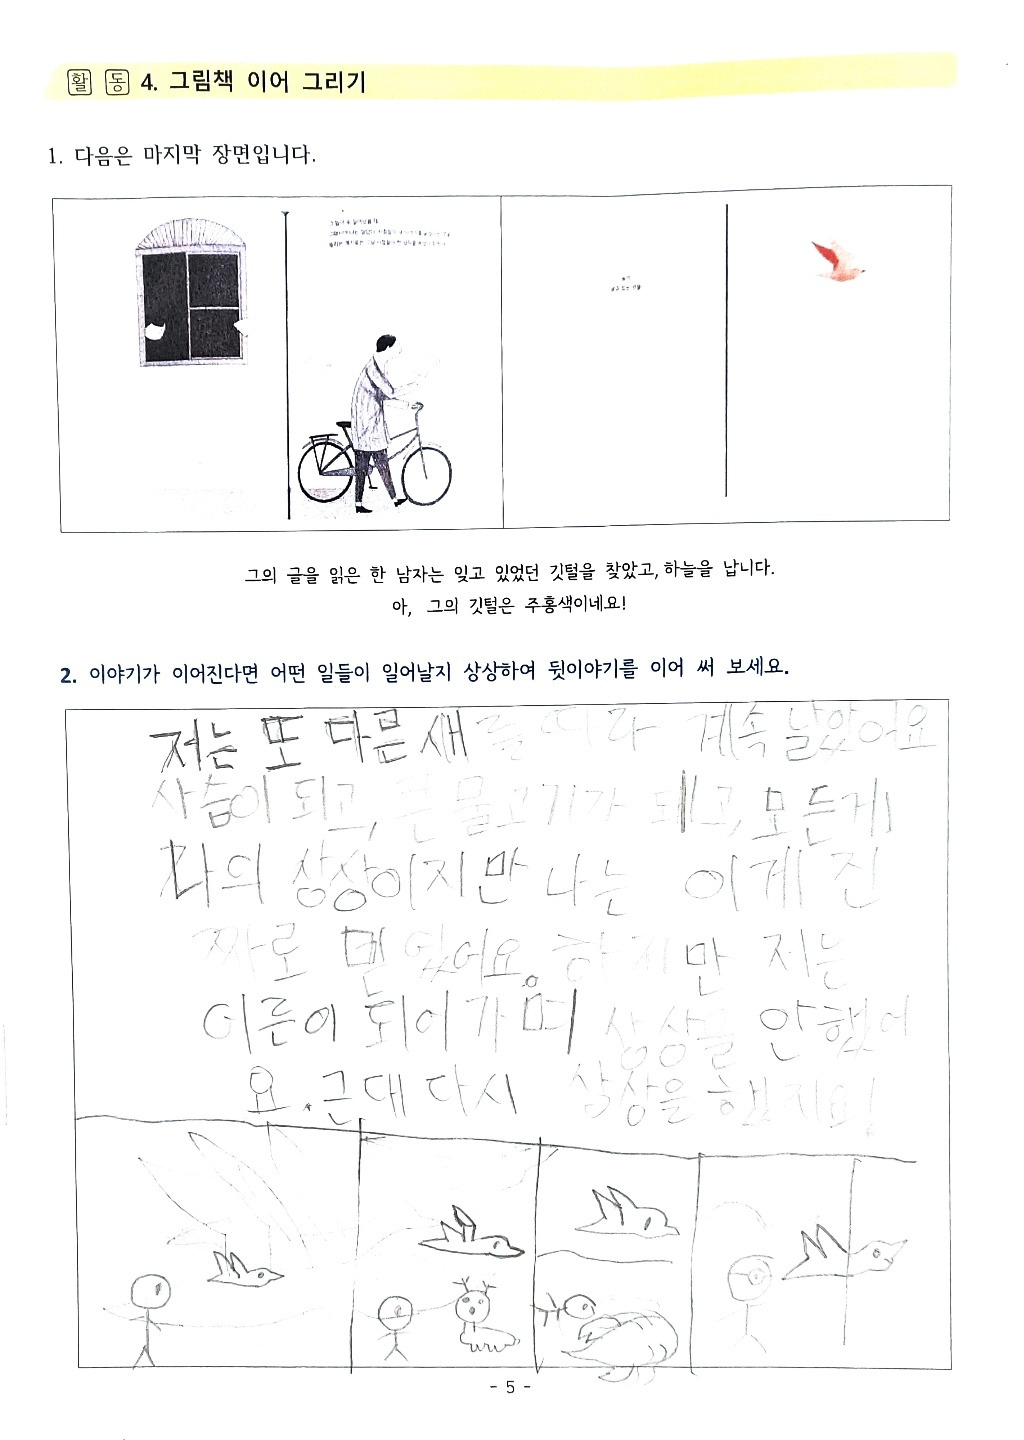 활동 4. 그림책 이어 그리기
1. 다음은 마지막 장면입니다.
그의 글을 읽은 한 남자는 잊고 있었던 깃털을 찾았고, 하늘을 납니다.
아, 그의 깃털은 주홍색이네요!
2. 이야기가 이어진다면 어떤 일들이 일어날지 상상하여 뒷이야기를 이어 써 보세요.
저는 또 다른 새를 따라 계속 날았어요
사슴이 되고, 큰 물고기가 돼고, 모든게
나의 상상이지만 나는 이게 진
짜로 믿었어요. 하지만 저는
어른이 되어가며 상상을 안했어
요. 근대 다시 상상을 했지요!
- 5 -